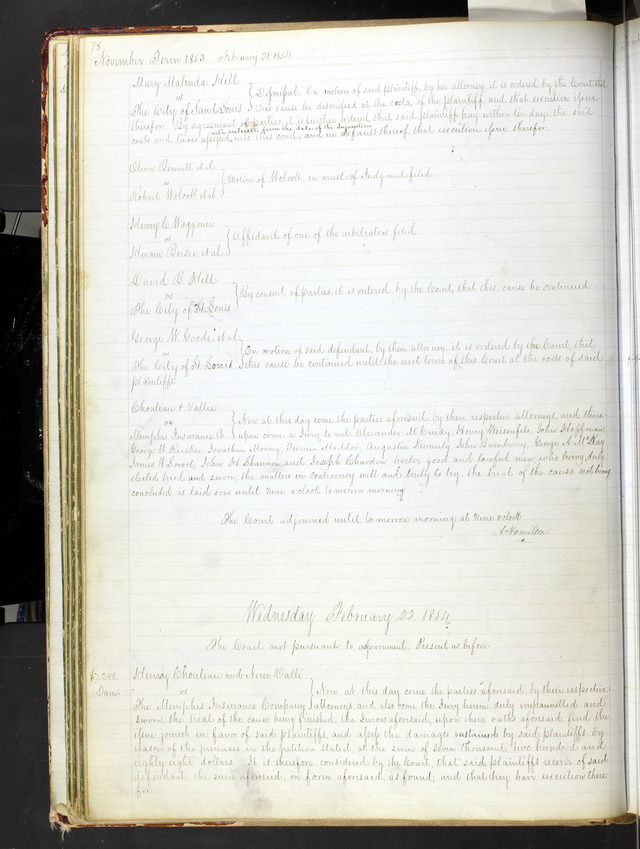 78
November Term 1853 February 21 1854
Mary Malinda Hill
vs
The City of Saint Louis
Dismissal. On motion of said plaintiff, by her attorney, it is ordered by the Court that
this cause be dismissed at the costs, of the plaintiff, and that execution issue
therefor. By agreement of parties, it is further ordered that said plaintiff pay within ten days the said
with interest from the date of the
costs and taxes into this court, and in default thereof that execution issue therefor.
Oliver Bennett et al
vs
Robert Wolcott et al
Motion of Wolcott, in arrest of Judgment filed
Henry C. Waggoner
vs
Hiram et al
Affidavit of one of the arbitrators filed
David B. Hill
vs
The City of St. Louis
By consent of parties, it is ordered by the Court, that this cause be continued
George W. Goode et al.
vs
The City of St Louis
On motion of said defendant, by their attorney, it is ordered by the Court, that
this cause be continued until the next term of this Court at the costs of said
plaintiffs.
Chouteau & Valle
vs
Memphis Insurance Co.
Now at this day come the parties aforesaid by their respective attorneys, and there
upon come a Jury to wit Alexander Henry John Hoffman,
George W. Jonathan Turner Maddox, Augustus Kennerly John George A. McKay
James W. Smoot, John H. Shannon, and Joseph Chardon, twelve good and lawful men, who being duly
elected tried and sworn, the matters in controversy well and truly to try, the trial of the cause not being
concluded, is laid over until Nine o'clock tomorrow morning
The Court adjourned until tomorrow morning at Nine o'clock
A. Hamilton.
Wednesday February 22, 1854
The Court met pursuant to adjournment. Present as before.
$7288
Dam.
Henry Chouteau and Neree Vallé
vs
The Memphis Insurance Company
Now at this day come the parties aforesaid, by their respective
attorneys and also come the Jury herein, duly empannelled and
sworn, the trial of the cause being finished, the Jurors aforesaid, upon their oaths aforesaid, find the
issue joined in favor of said plaintiffs, and assess the damages sustained by said plaintiffs by
reason of the premises in the petition stated at the sum of seven thousand, two hundred and
eighty eight dollars. It is therefore considered by the Court that said plaintiffs recover of said
defendant the sum aforesaid, in form aforesaid, as found, and that they have execution there
for.